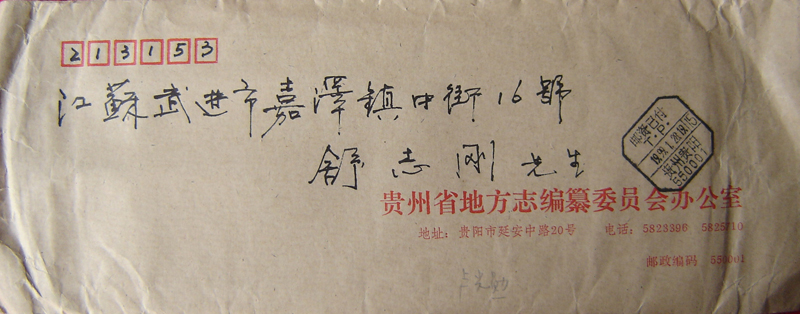 213153
江蘇武进市嘉澤鎮中街16號
舒志刚先生
邮资已付
T.P.
贵州贵阳
550001
贵州省地方志编纂委员会办公室
地址：贵阳市延安中路20号 电话：5823396 5825710
邮政编码 550001